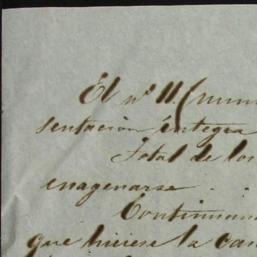 El nº 11. (num
sentacion íntegra
Total de los
enagenarse . .
Continuan
que hiciese la can